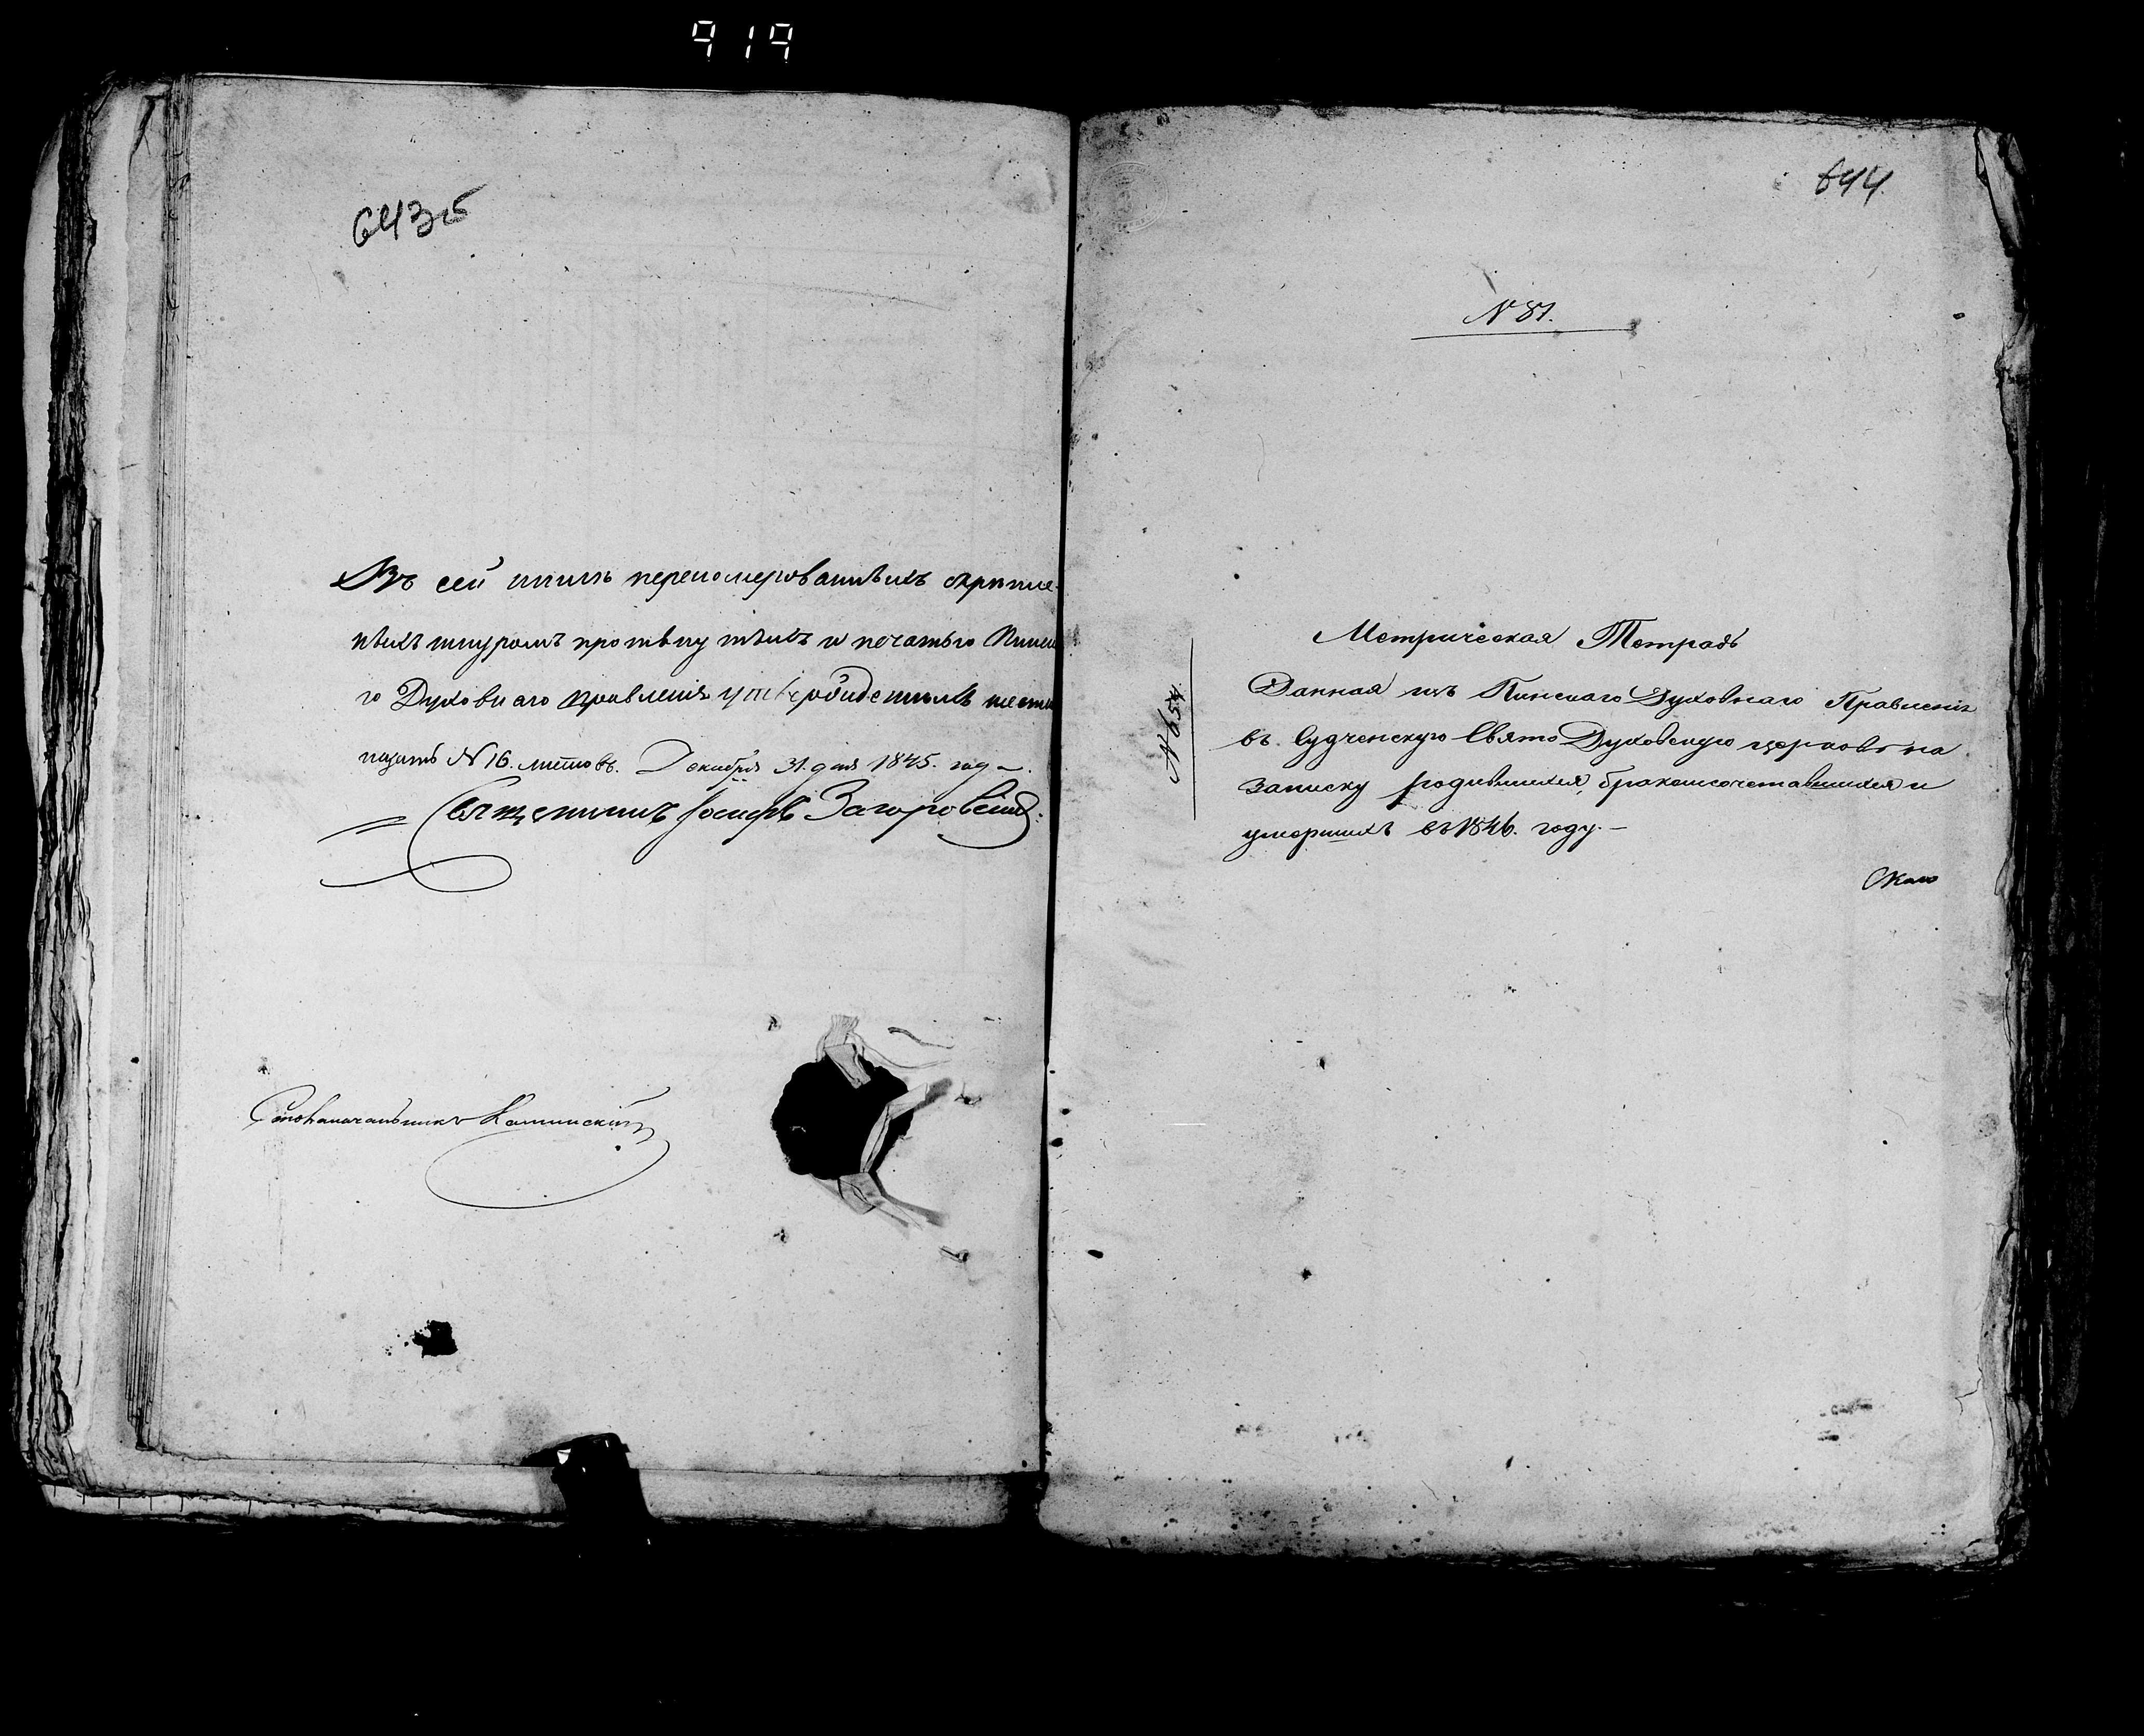 919
643б
Въ сей книгѣ перенумерованныхъ скрѣпле-
ныхъ шнуромъ протянутыхъ и печатью Пинска
го Духовнаго Правленія утвержденныхъ шест
надцать №16. листовъ. Декабря 31. дня 1845. года.
Священникъ Іосифъ Загоровскій.
Столоначальникъ
644.
№ 81.
№ 654.
Метрическая Тетрадь
Данная изъ Пинскаго Духовнаго Правленія
въ Судченскую Свято Духовскую церковь на
записку родившихся бракомсочетавшихся и
умершихъ въ 1846. году.—